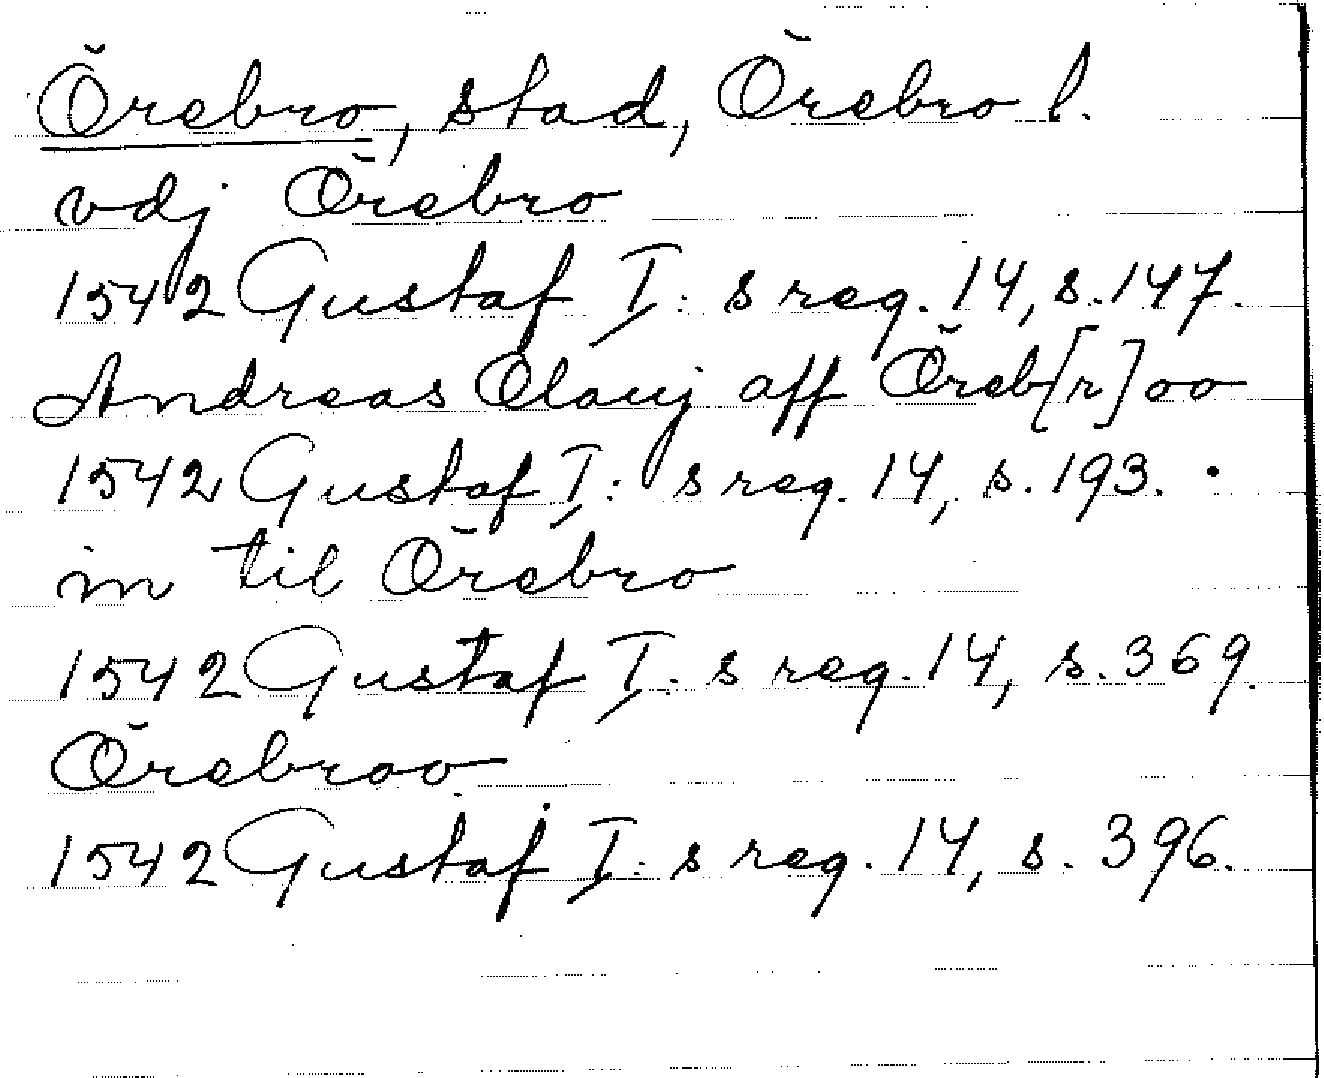 Örebro, stad, Örebro l.
vdj Örebro
1542 Gustaf I:s reg. 14, s. 147.
Andreas Olauj aff Öreb[r]oo
1542 Gustaf I:s reg. 14, s. 193.
in til Örebro
1542 Gustaf I:s reg. 14, s. 369.
Örebroo
1542 Gustaf I:s reg. 14, s. 396.